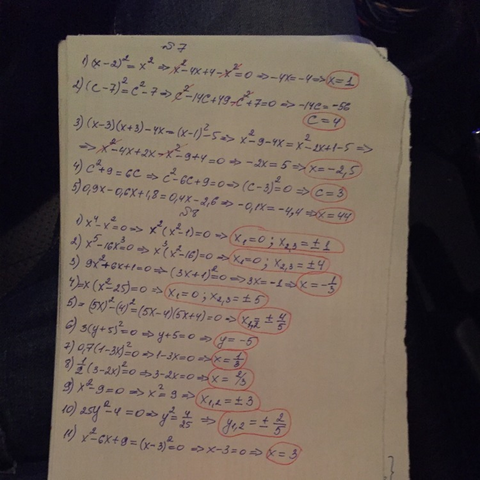 №7
1) (x-2)² = x² ⇒ x²-4x+4-x²=0 ⇒ -4x=-4 ⇒ x=1
2) (c-7)²=c²-7 ⇒ c²-14c+49-c²+7=0 ⇒ -14c=-56
c=4
3) (x-3)(x+3)-4x=(x-1)²-5 ⇒ x²-9-4x=x²-2x+1-5 ⇒
⇒ x²-4x+2x-x²-9+4=0 ⇒ -2x=5 ⇒ x=-2,5
4) c²+9=6c ⇒ c²-6c+9=0 ⇒ (c-3)²=0 ⇒ c=3
5) 0,9x-0,6x+1,8=0,4x-2,6 ⇒ -0,1x=-4,4 ⇒ x=44
№8
1) x⁴-x²=0 ⇒ x²(x²-1)=0 ⇒ x₁=0; x₂,₃=±1
2) x⁵-16x³=0 ⇒ x³(x²-16)=0 ⇒ x₁=0; x₂,₃=±4
3) 9x²+6x+1=0 ⇒ (3x+1)²=0 ⇒ 3x=-1 ⇒ x=-1/3
4) = x(x²-25)=0 ⇒ x₁=0; x₂,₃=±5
5) = (5x)²-(4)²=(5x-4)(5x+4)=0 ⇒ x₁,₂=±4/5
6) 3(y+5)²=0 ⇒ y+5=0 ⇒ y=-5
7) 0,7(1-3x)²=0 ⇒ 1-3x=0 ⇒ x=1/3
8) 1/2(3-2x)²=0 ⇒ 3-2x=0 ⇒ x=2/3
9) x²-9=0 ⇒ x²=9 ⇒ x₁,₂=±3
10) 25y²-4=0 ⇒ y²=4/25 ⇒ y₁,₂=±2/5
11) x²-6x+9=(x-3)²=0 ⇒ x-3=0 ⇒ x=3